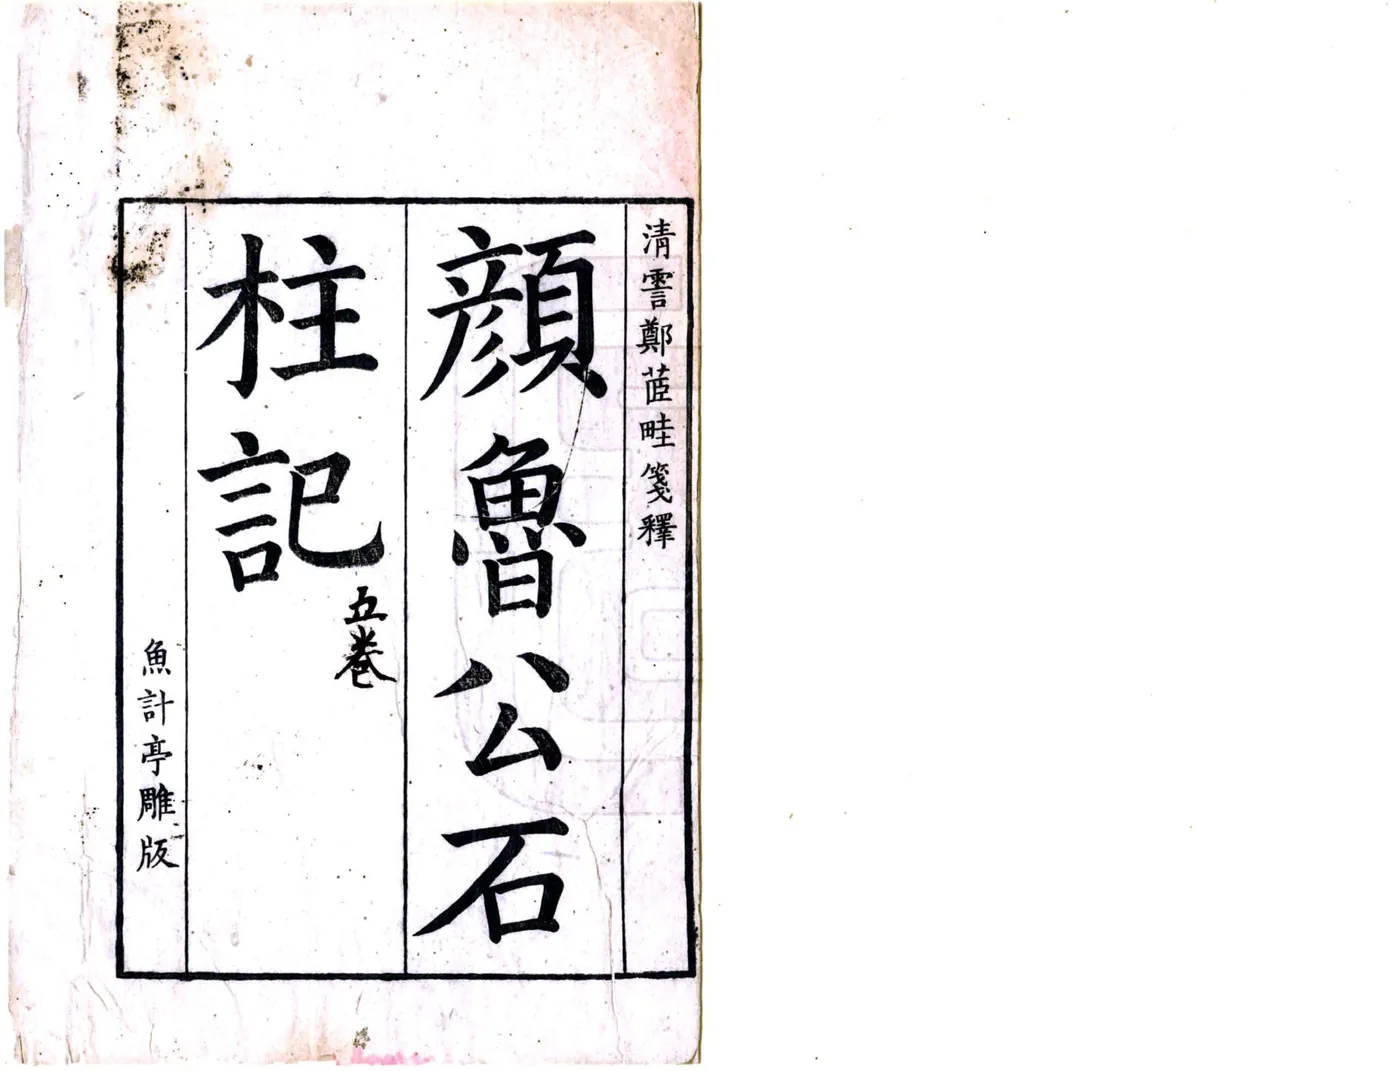 清霅鄭茞畦箋釋
顔魯公石
柱記
五卷
魚計亭雕版